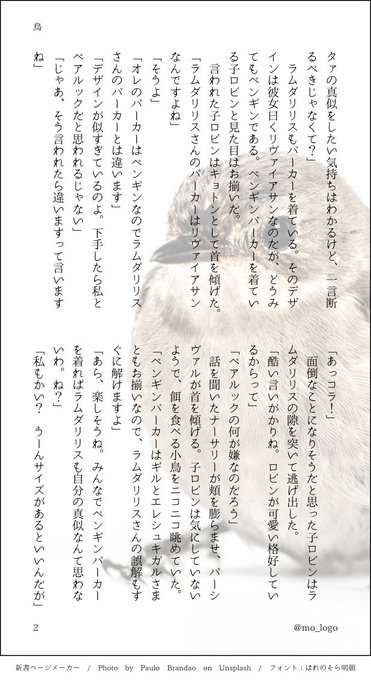 鳥
タァの真似をしたい気持ちはわかるけど、一言断
るべきじゃなくて？」
　ラムダリリスもパーカーを着ている。そのデザ
インは彼女曰くリヴァイアサンなのだが、どうみ
てもペンギンである。ペンギンパーカーを着てい
る子ロビンと見た目はお揃いた。
　言われた子ロビンはキョトンとして首を傾げた。
「ラムダリリスさんのパーカーはリヴァイアサン
なんですよね」
「そうよ」
「オレのパーカーはペンギンなのでラムダリリス
さんのパーカーとは違います」
「デザインが似すぎているのよ。下手したら私と
ペアルックだと思われるじゃない」
「じゃあ、そう言われたら違いますって言います
ね」
「あっコラ！」
　面倒なことになりそうだと思った子ロビンはラ
ムダリリスの隙を突いて逃げ出した。
「酷い言いがかりね。ロビンが可愛い格好してい
るからって」
「ペアルックの何が嫌なのだろう」
　話を聞いたナーサリーが頬を膨らませ、バーシ
ヴァルが首を傾げる。子ロビンは気にしていない
ようで、餌を食べる小鳥をニコニコ眺めていた。
「ペンギンパーカーはギルとエレシュキガルさま
ともお揃いなので、ラムダリリスさんの誤解もす
ぐに解けますよ」
「あら、楽しそうね。みんなでペンギンパーカー
を着ればラムダリリスも自分の真似なんて思わな
いわ。ね？」
「私もかい？　うーんサイズがあるといいんだが」
2
@mo_logo
新書ページメーカー / Photo by Paulo Brandao on Unsplash / フォント：はれのそら明朝